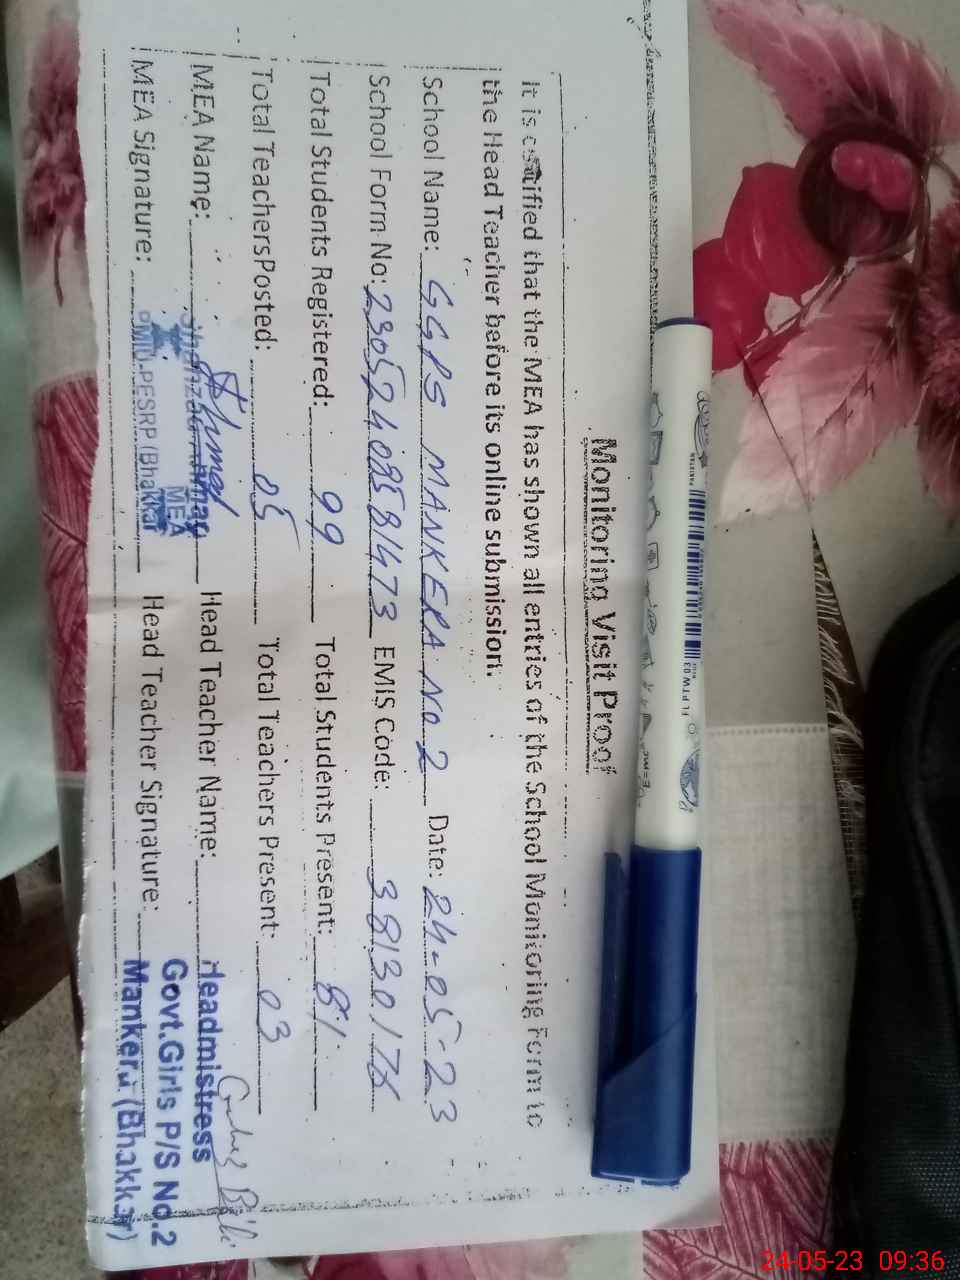 Monitoring Visit Proof
It is certified that the MEA has shown all entries of the School Monitoring Form to
the Head Teacher before its online submission.
School Name: GGPS MANKERA No 2 Date: 24-05-23
School Form No: 23052408581473 EMIS Code: 38130176
Total Students Registered: 99 Total Students Present: 81
Total TeachersPosted: 05 Total Teachers Present: 03
MEA Name: Head Teacher Name: Headmistress
MEA
Govt.Girls P/S No.2
MEA Signature: PMIU-PESRP (Bhakkar) Head Teacher Signature: Mankera (Bhakkar)
FLPTW 03
24-05-23 09:36